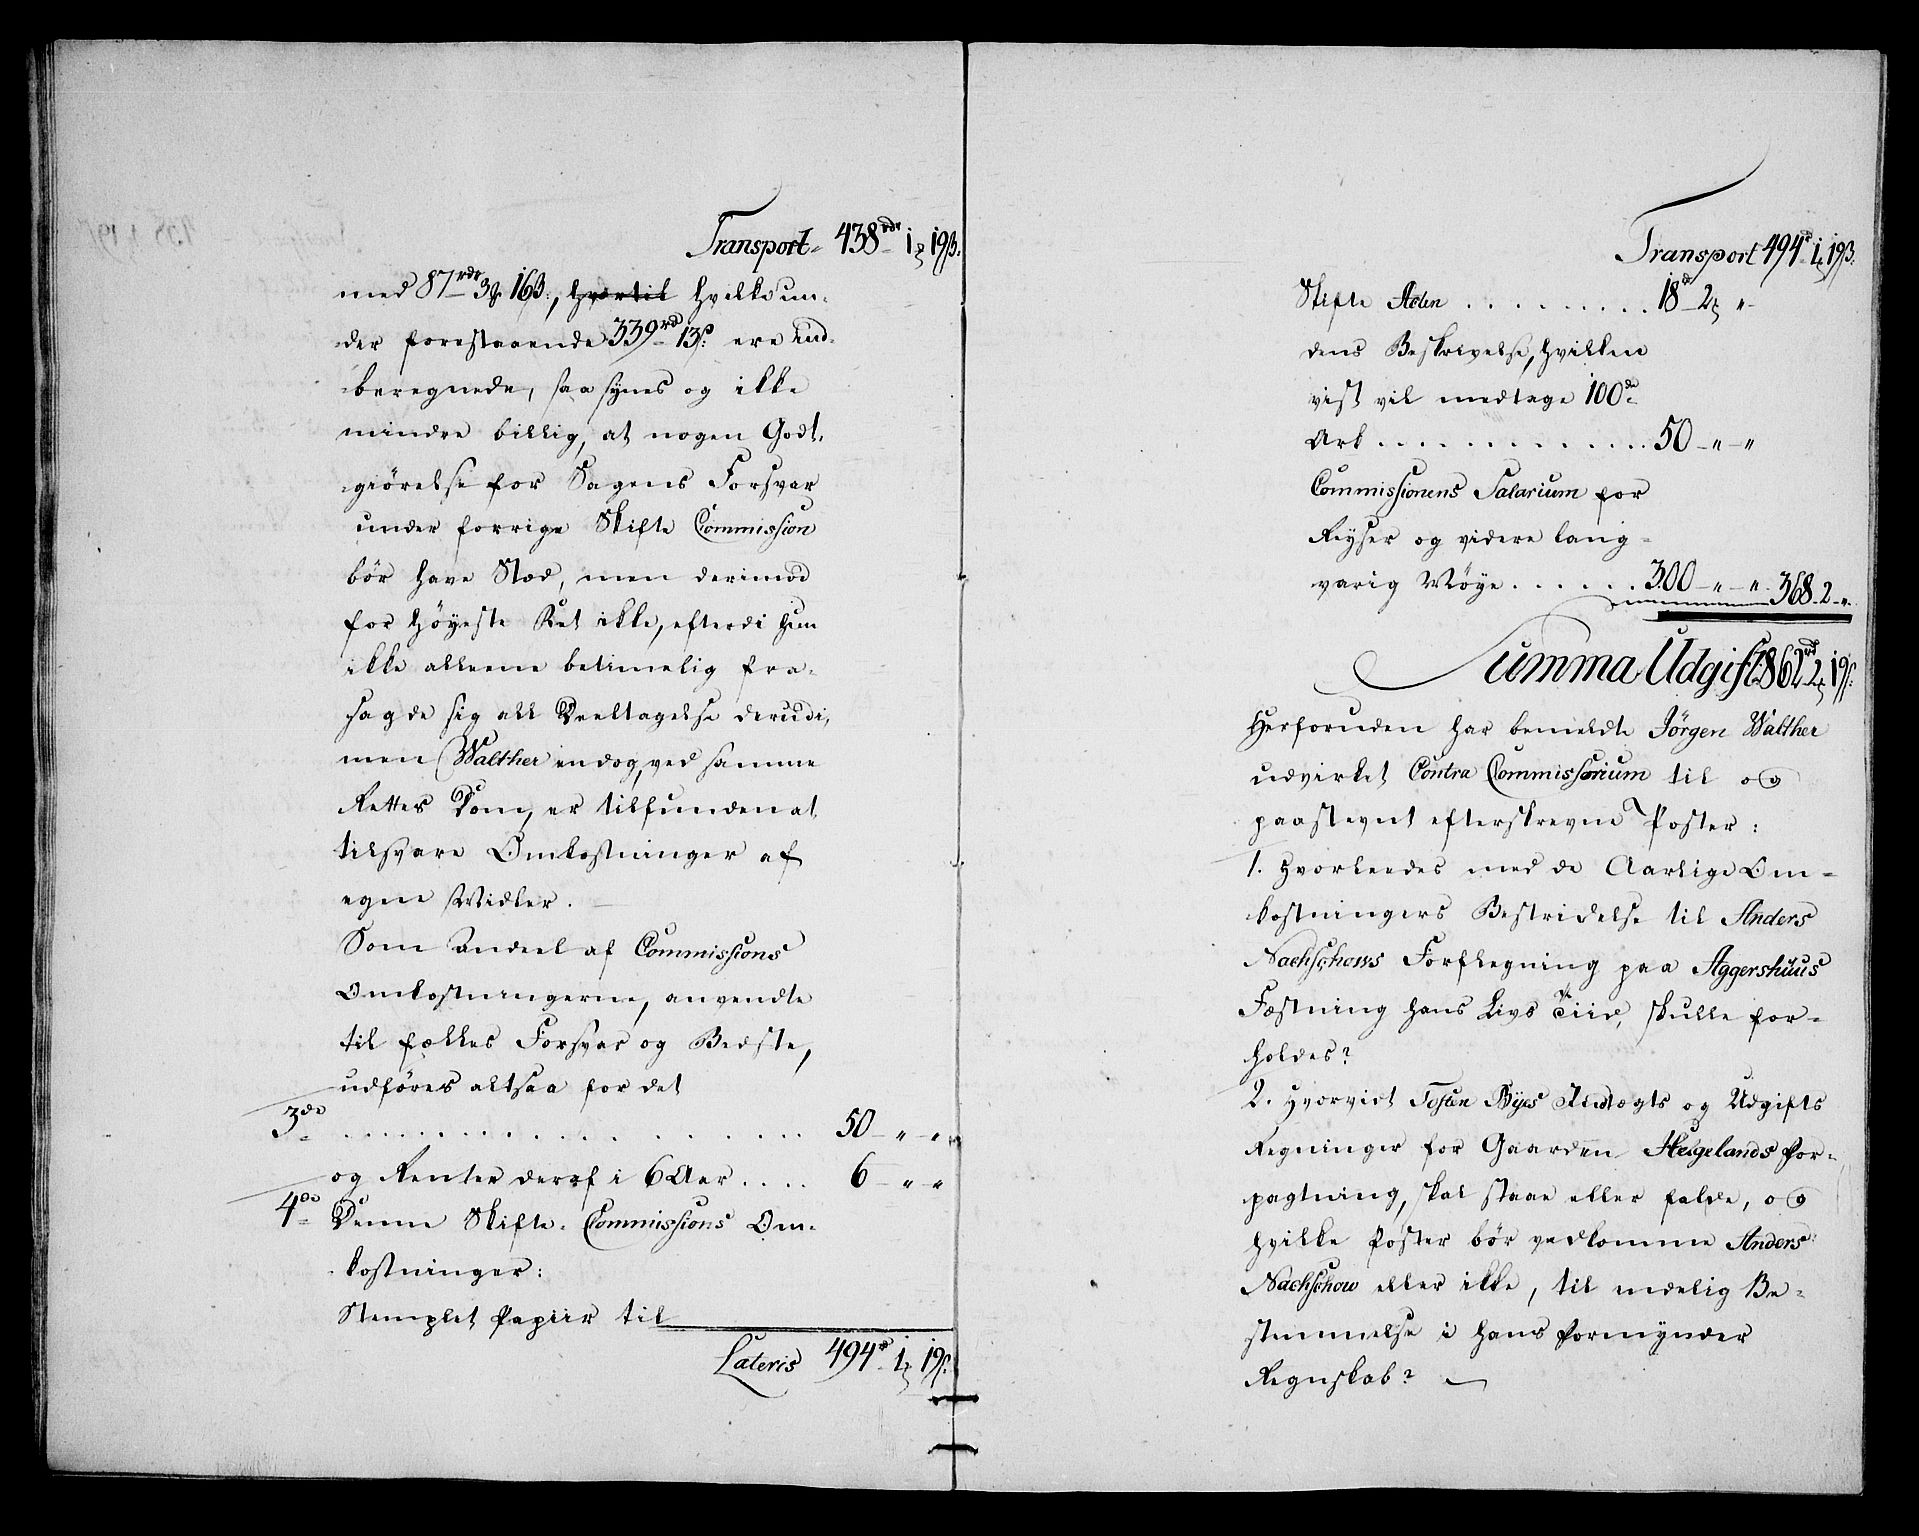 Transport 438 rdr 1 ₰ 19 β.
med 87 rdr 3 ₰ 16 β., hvortil hvilke un-
der forestaaende 339 rd 13 β. ere ind-
beregnede, saa synes og ikke
mindre billig, at nogen Godt-
giörelse for Sagens Forsvar
under forrige Skifte Commission
bör have Stæd, men derimod
for Höyeste Ret ikke, efterdi hun
ikke alleene betimelig fra-
sagde sig all Deeltagelse derudi,
men Walther endog, ved samme
Rettes Dom, er tilfunden at
tilsvare Omkostninger af
egne Midler. —
Som Andeel af Commissions
Omkostningerne, anvendte
til fælles Forsvar og Bedste,
udföres altsaa for det
3de . . . . . . . . . . 50 - " - "
og Renter deraf i 6 Aar . . . . 6 - " "
4de Denne Skifte Commissions Om-
kostninger:
Stemplet Papiir til
Lateris 494 r 1 ₰ 19 β.
Transport 494 r 1 ₰ 19 β.
Skifte Acten . . . . . . . . . 18 r 2 ₰ "
dens Beskrivelse, hvilken
vist vil medtage 100de
Ark . . . . . . . . . . . . 50 - " - "
Commissionens Salarium for
Reyser og videre lang-
varig Möye . . . . . . 300 - " - " 368 - 2 - "
Summa Udgift 862 rd 2 ₰ 19 β.
Herforuden har bemeldte Jörgen Walther
udvirket Contra Commissorium til og
paastevnt efterskrevne Poster:
1. Hvorleedes med de Aarlige Om-
kostningers Bestridelse til Anders
Nachschows Forflegning paa Aggershuus
Fæstning hans Livs Tiid, skulle for-
holdes?
2. Hvorvidt Tosten Byes Indtægts og Udgifts
Regninger for Gaarden Helgelands For-
pagtning, skal staae eller falde, og
hvilke Poster bör vedkomme Anders
Nachschow eller ikke, til endelig Be-
stemmelse i hans Formynder
Regnskab? —